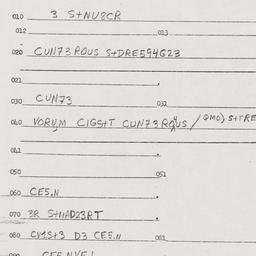 010 3 S+NU8CR
012 013
020 CUN73 ROUS S+DRE594G23
021 .
030 CUN73 031
040 VORUM CIGS+T CUN73 RQUS / QMO) S+TRE
041 .
050 051
060 CE5.N .
070 3R S+NAD23RT .
080 CV1S+3 D3 CE5.N 081
090 CE5 NYE1